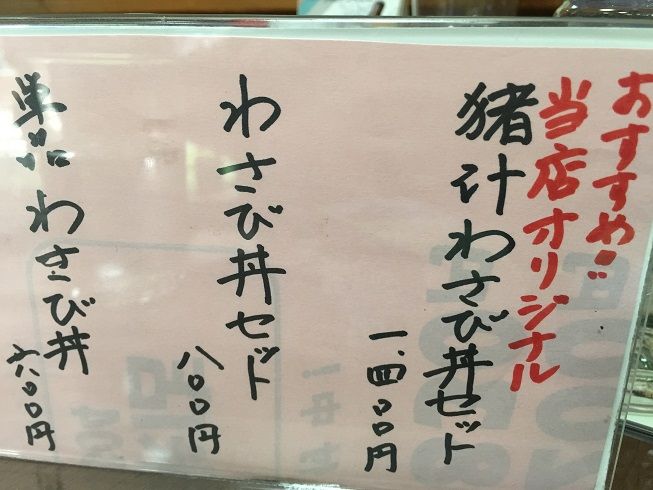 おすすめ!!
当店オリジナル
猪汁わさび丼セット
一、四〇〇円
わさび丼セット
八〇〇円
単品わさび丼
六〇〇円